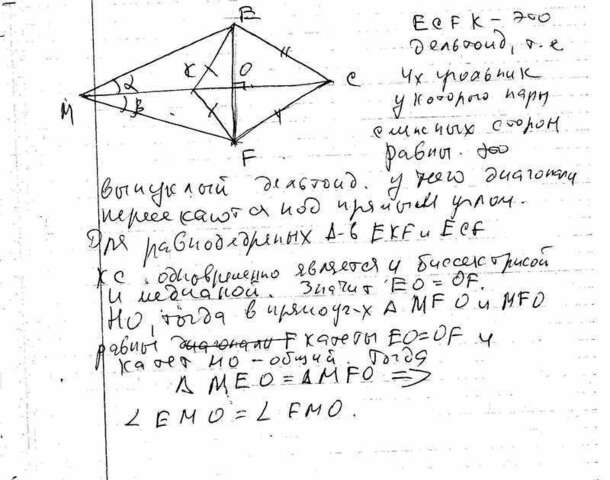 E
K
O
C
M
α
β
F
ECFK - это
дельтоид, т.е
4х угольник
у которого пары
смежных сторон
равны. это
выпуклый дельтоид. у него диагонали
пересекаются под прямым углом.
Для равнобедреных Δ-в EKF и ECF
KC одновременно является и биссектрисой
и медианой. Значит EO = OF.
НО, тогда в прямоуг-х Δ MFO и MFO
равны диагонали F катеты EO=OF и
катет МО - общий. Тогда
Δ MEO = Δ MFO =>
∠ EMO = ∠ FMO.